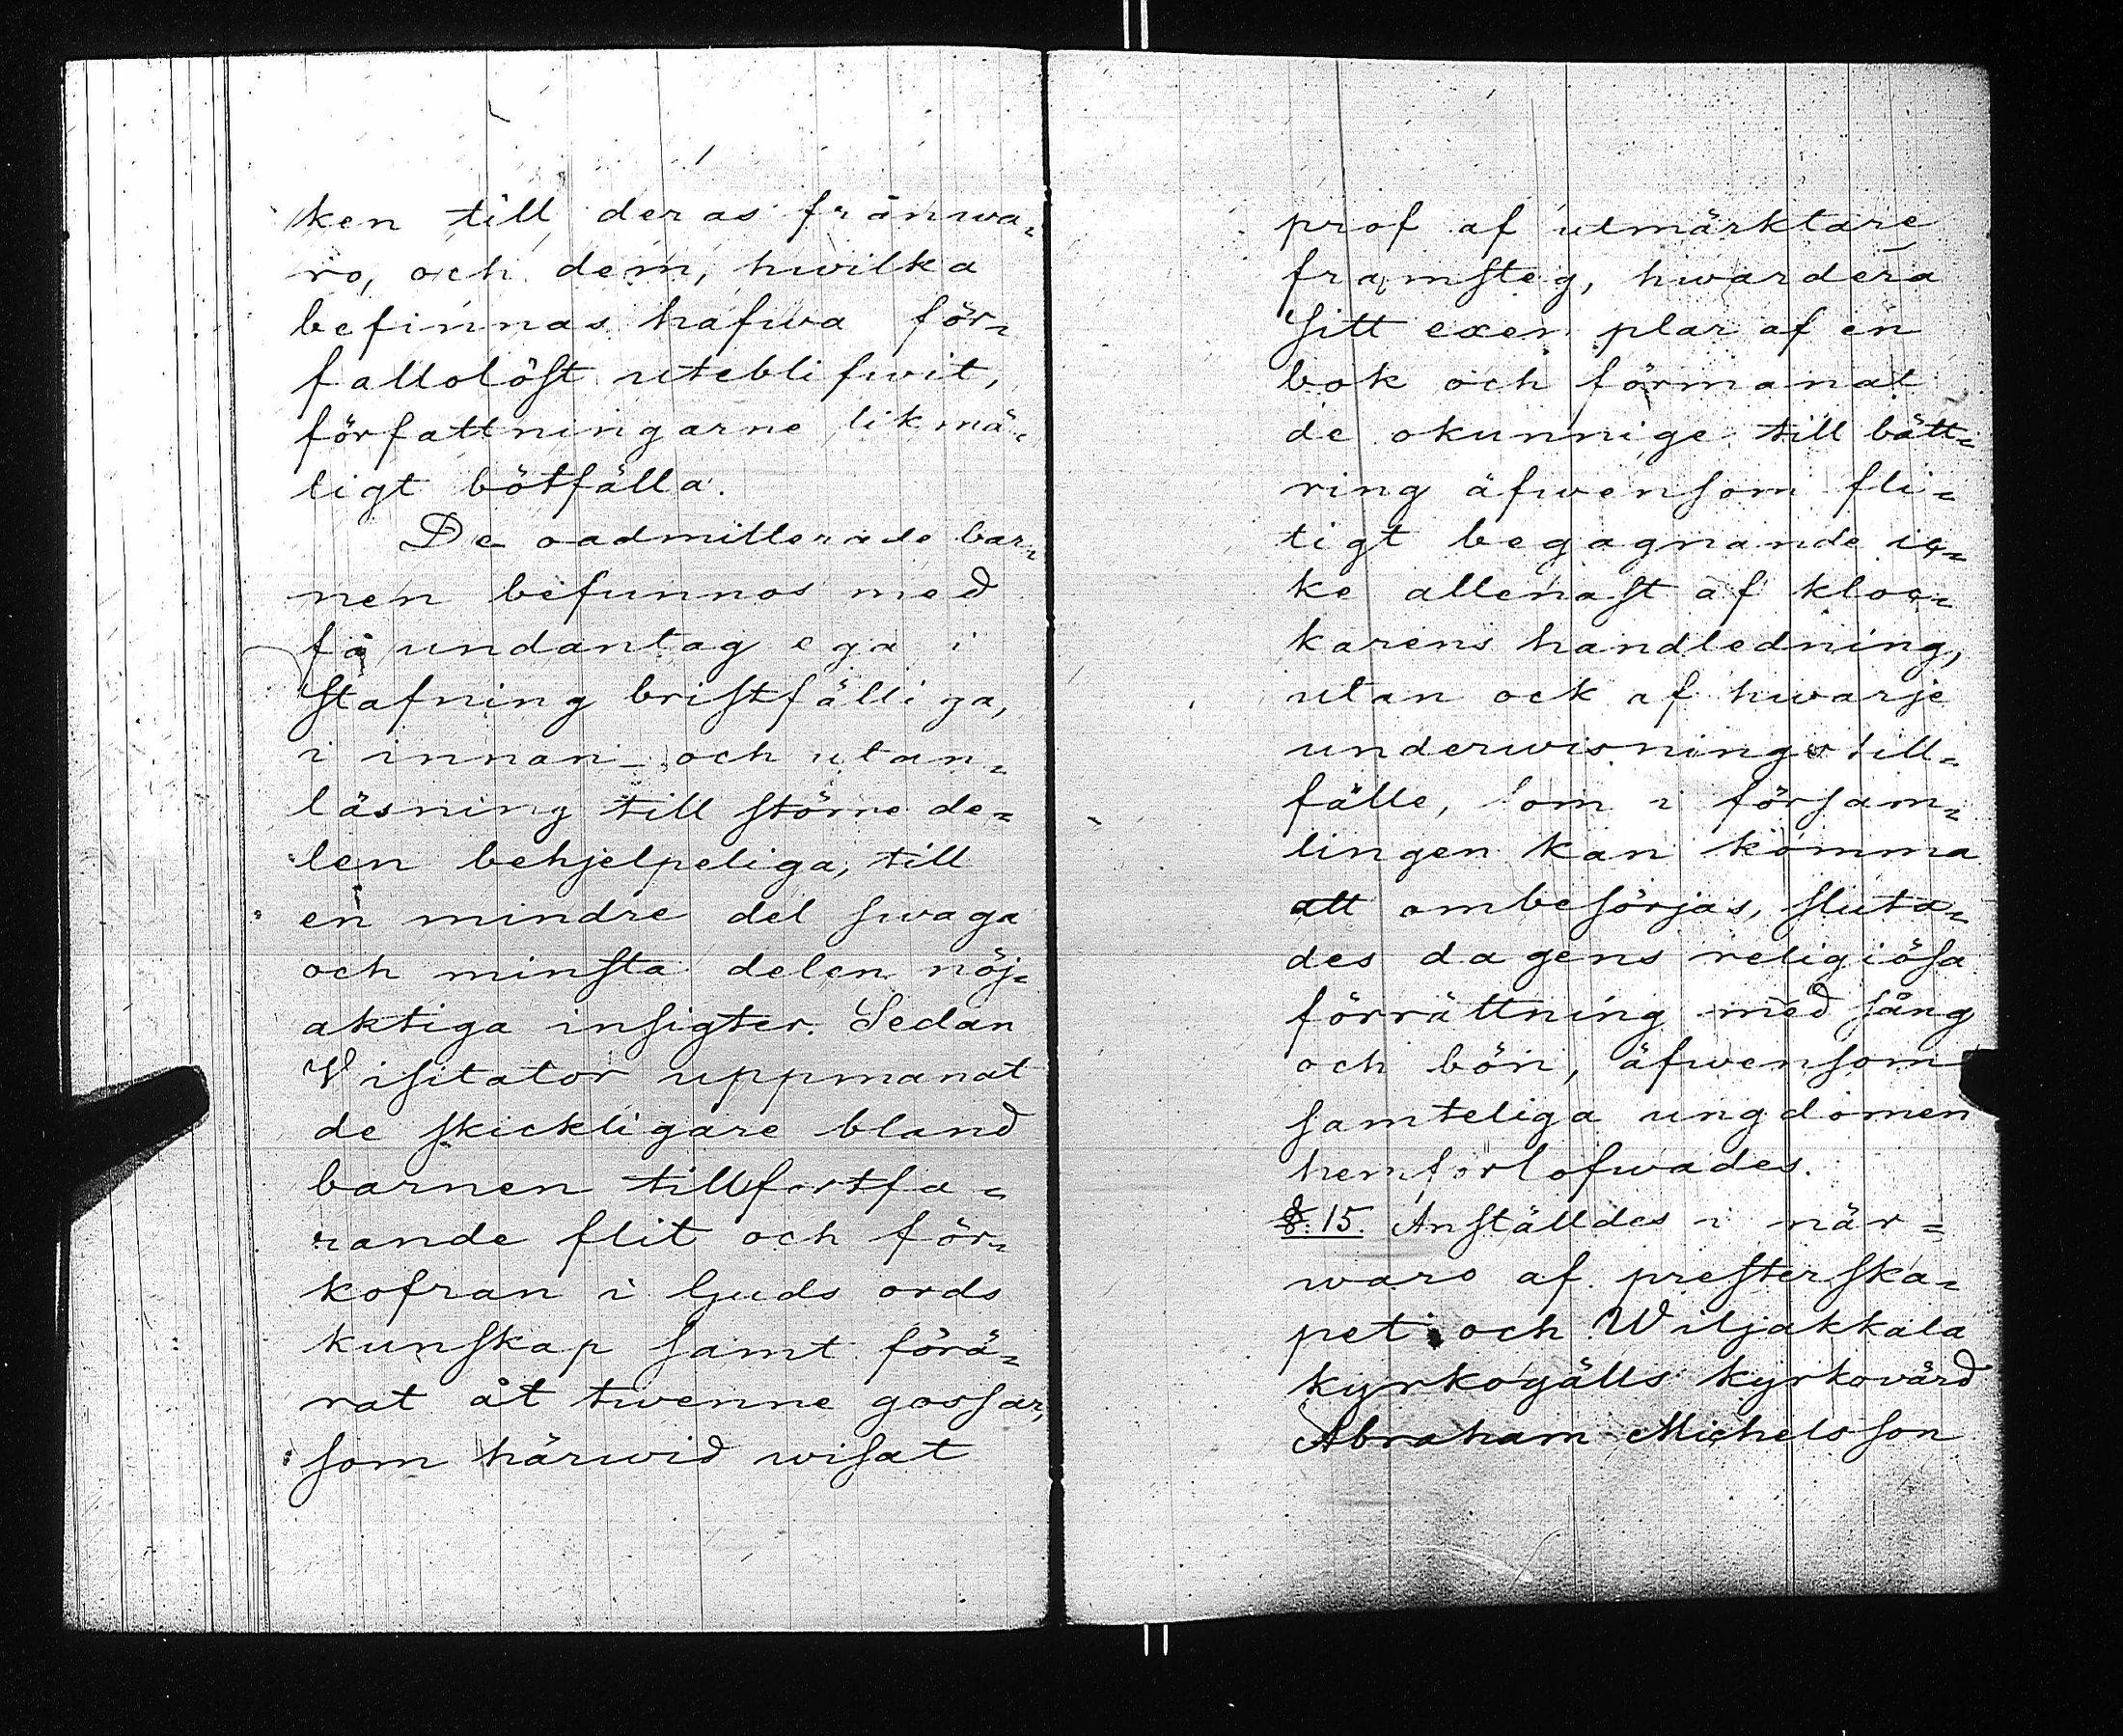 ken till deras frånwa=
ro, och dem, hwilka
befinnas hafwa för=
fallolöst uteblifwit,
författningarne likmä=
ligt bötfälla.
De oadmitterade bar=
nen befunnos med
få undantag ega i
stafning bristfälliga,
i innan- och utan=
läsning till större de=
len behjelpeliga, till
en mindre del swaga
och minsta delen nöj=
aktiga insigter. Sedan
Visitator uppmanat
de skickligare bland
barnen till fortfa=
rande flit och för=
kofran i Guds ords
kunskap samt förä=
rat åt twenne gossar,
som härwid wisat
prof af utmärktare
framsteg, hwardera
sitt exemplar af en
bok och förmanat
de okunnige till bätt=
ring äfwensom fli=
tigt begagnande ic=
ke allenast af kloc=
karens handledning,
utan ock af hwarje
underwisningstill=
fälle, som i försam=
lingen kan komma
att ombesörjas, sluta=
des dagens religiösa
förrättning med sång
och bön, äfwensom
samteliga ungdomen
hemförlofwades.
§. 15. Anställdes i när=
waro af presterska=
pet och Wiljakkala
kyrkogälls kyrkovärd
Abraham Michelsson